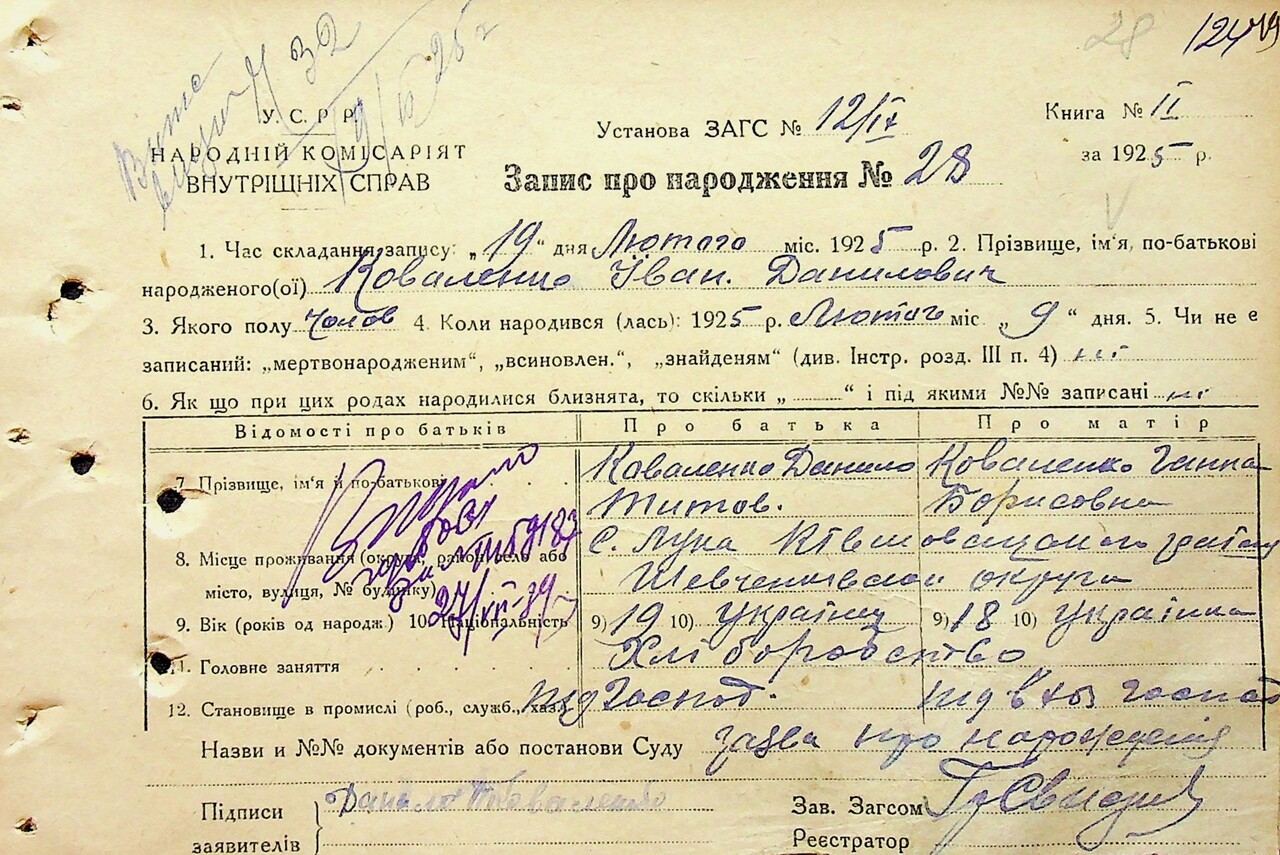 28 124
У. С. Р. Р.
НАРОДНІЙ КОМІСАРІЯТ
ВНУТРІШНІХ СПРАВ
Установа ЗАГС № 12/IX
Книга № II
за 1925 р.
Запис про народження № 28
1. Час складання запису: „19“ дня Лютого міс. 1925 р. 2. Прізвище, ім‘я, по-батькові
народженого(ої) Коваленко Іван. Данилович
3. Якого полу Чолов 4. Коли народився (лась): 1925 р. Лютого міс „9“ дня. 5. Чи не є
записаний: „мертвонародженим“, „всиновлен.“, „знайденям“ (див. Інстр. розд. III п. 4) ні
6. Як що при цих родах народилися близнята, то скільки „ “ і під якими №№ записані ні
Відомості про батьків Про батька Про матір
7. Прізвище, ім‘я й по-батькові Коваленко Данило Коваленко Ганна
Титов. Борисовна
8. Місце проживання (округа, район, село або с. Лука
місто, вулиця, № будинку) Шевченківской округи
27/VII-89
9. Вік (років од народж.) 10. Національність 9) 19 10) Українец 9) 18 10) Українка
11. Головне заняття Хліборобство
12. Становище в промислі (роб., служб., хаз.) госпот.
Назви и №№ документів або постанови Суду заява про народження
Підписи Данило Коваленко Зав. Загсом
заявителів Реєстратор